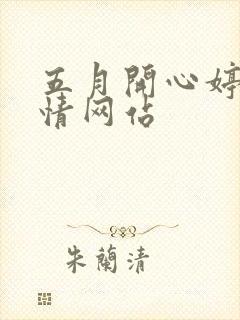 五月開心婷
情网佔
朱蘭清